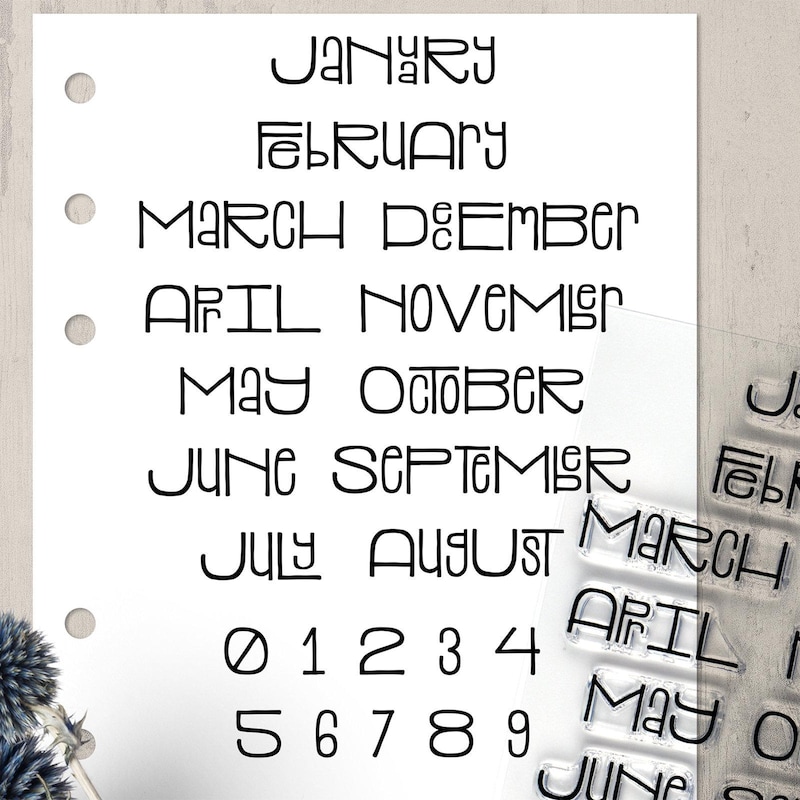 January
February
March December
April November
May October
June September
July August
0 1 2 3 4
5 6 7 8 9
Ja
Feb
March
April
May
O
June